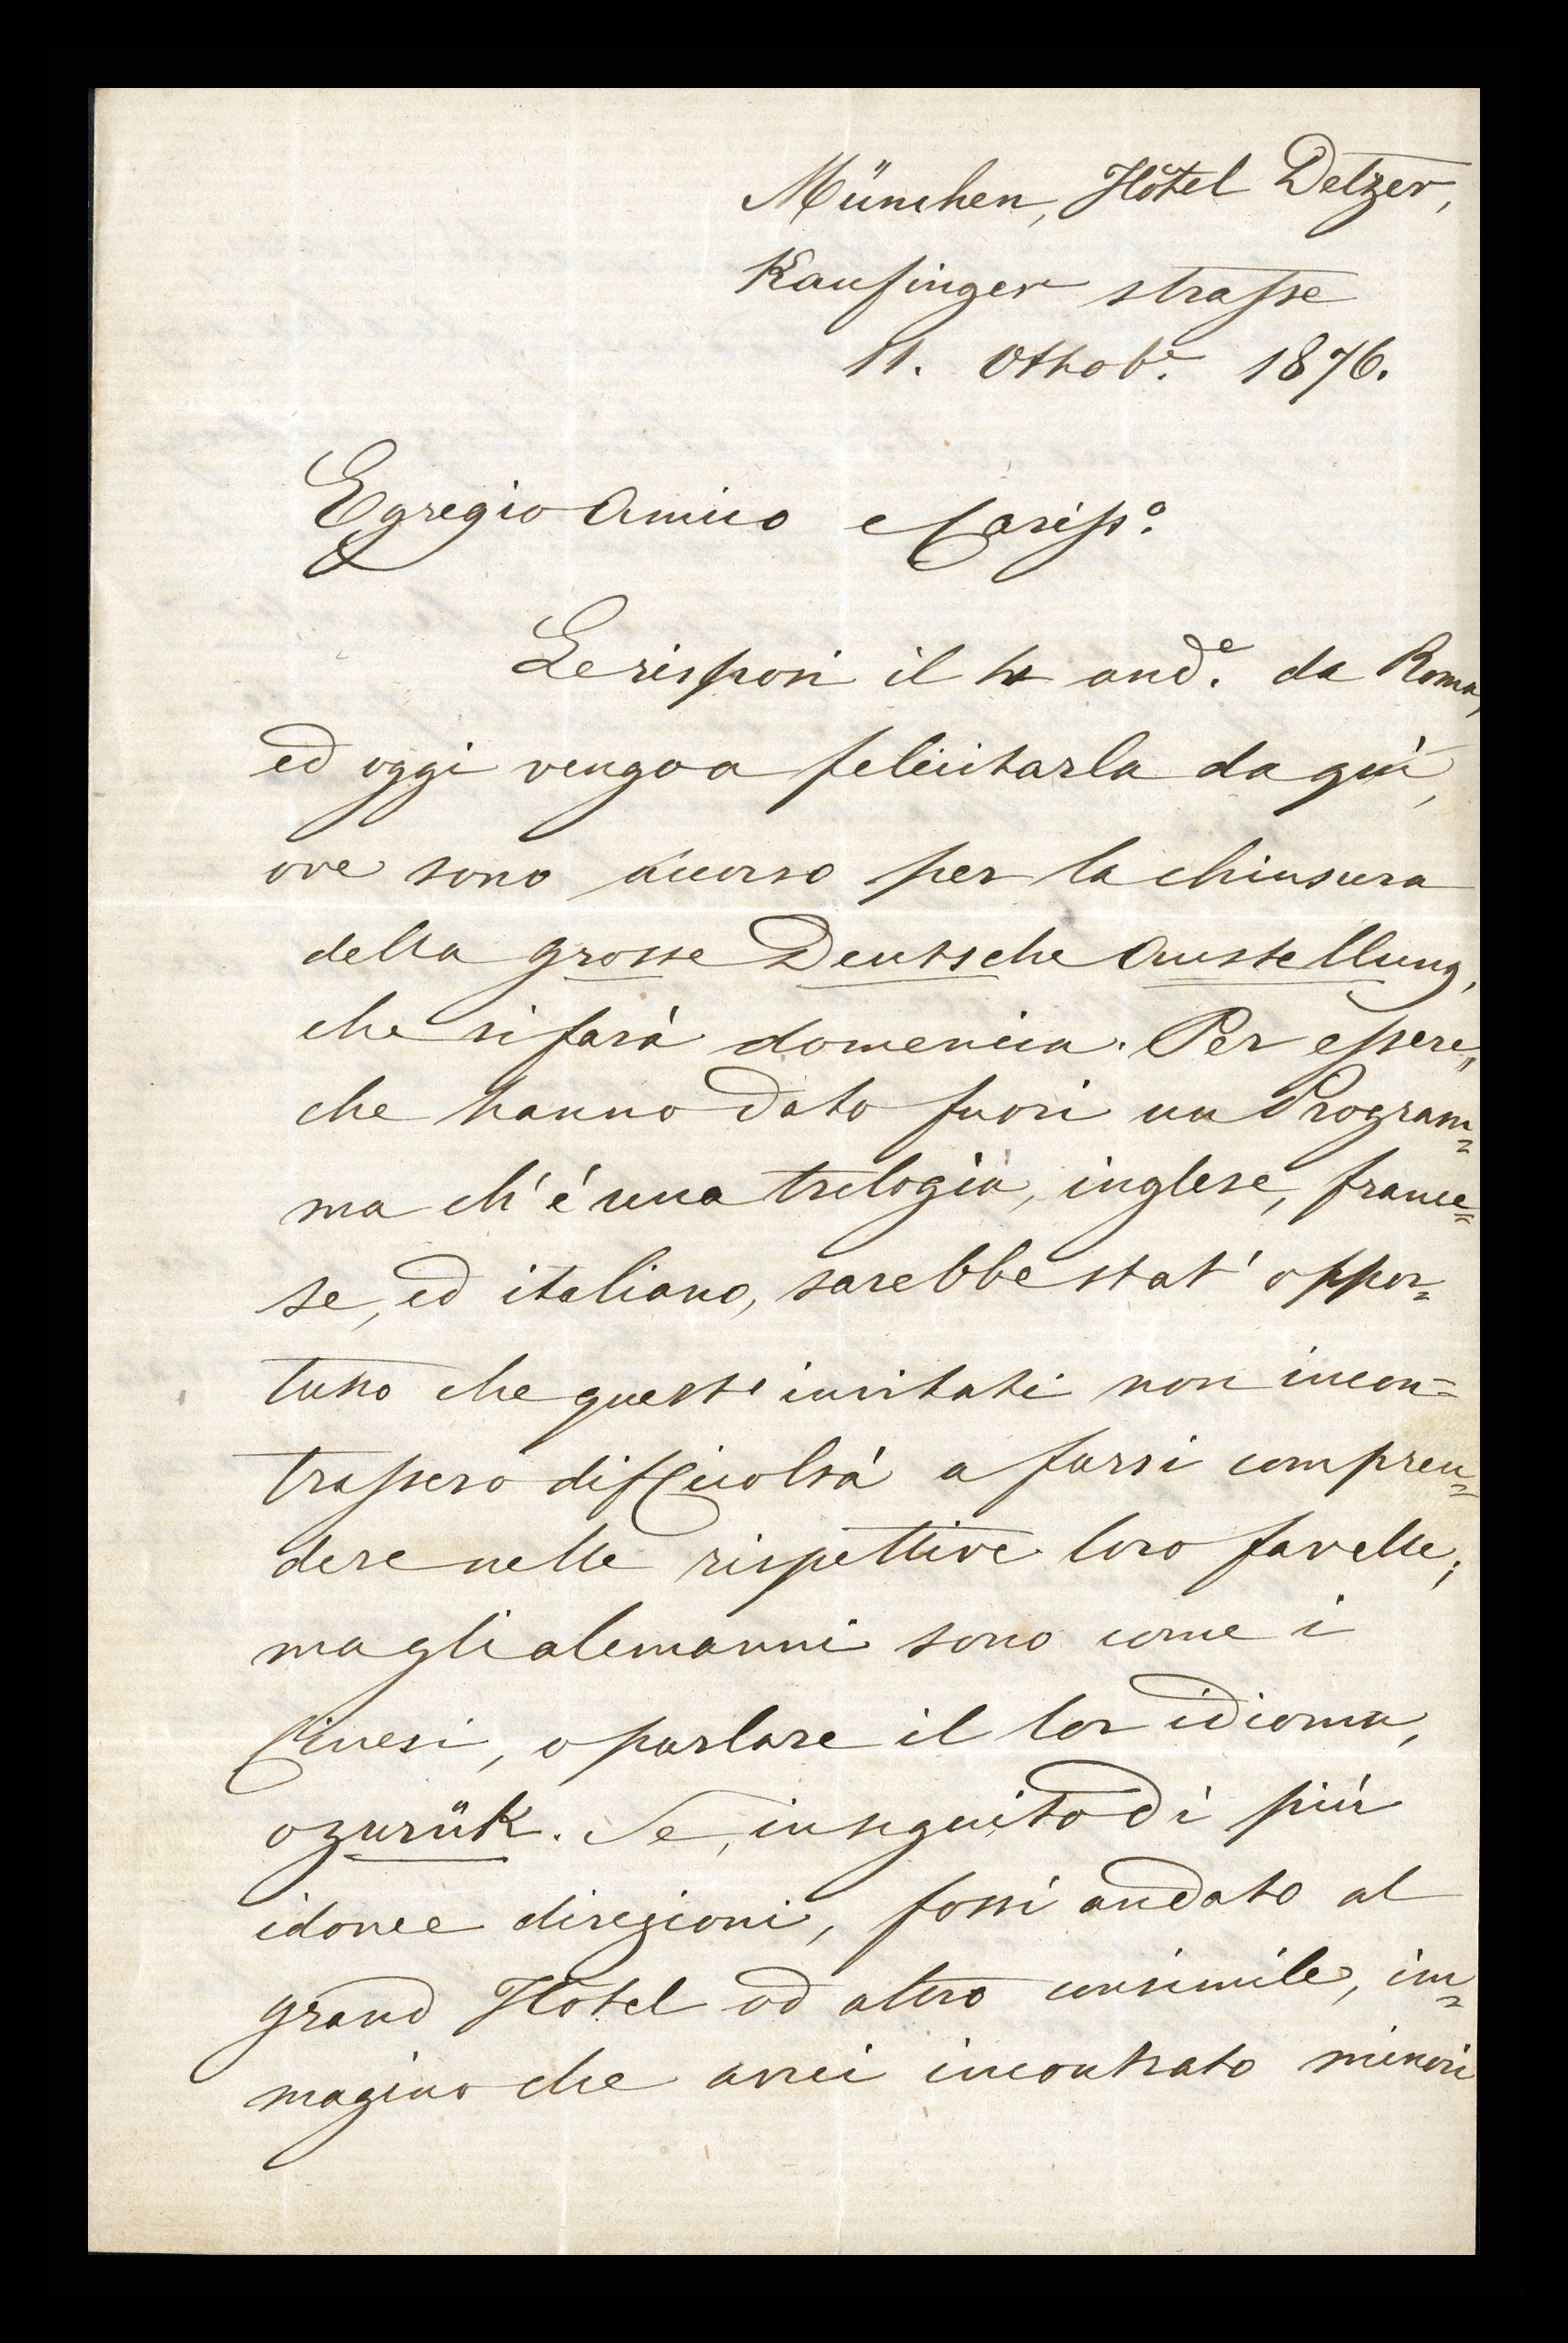 München, Hôtel Detzer,
Kaufinger strasse
11. Ottob.e 1876.
Egregio Amico e Cariss.o
Le risposi il and.e da Roma,
ed oggi vengo a felicitarla da quì,
ove sono accorso per la chiusura
della grosse Deutsche Austellung,
che si farà domenica. Per essere,
che hanno dato fuori un Program=
ma ch'é una trilogia, inglese, france=
se, ed italiano, sarebbe stat' oppor=
tuno che questi invitati non incon=
trassero difficoltà a farsi compren=
dere nelle rispettive loro favelle;
ma gli alemanni sono come i
Cinesi, o parlare il lor idioma,
o zurük. Se, in seguito di più
idonee direzioni, fossi andato al
grand Hôtel od altro consimile, im=
magino che avrei incontrato minori